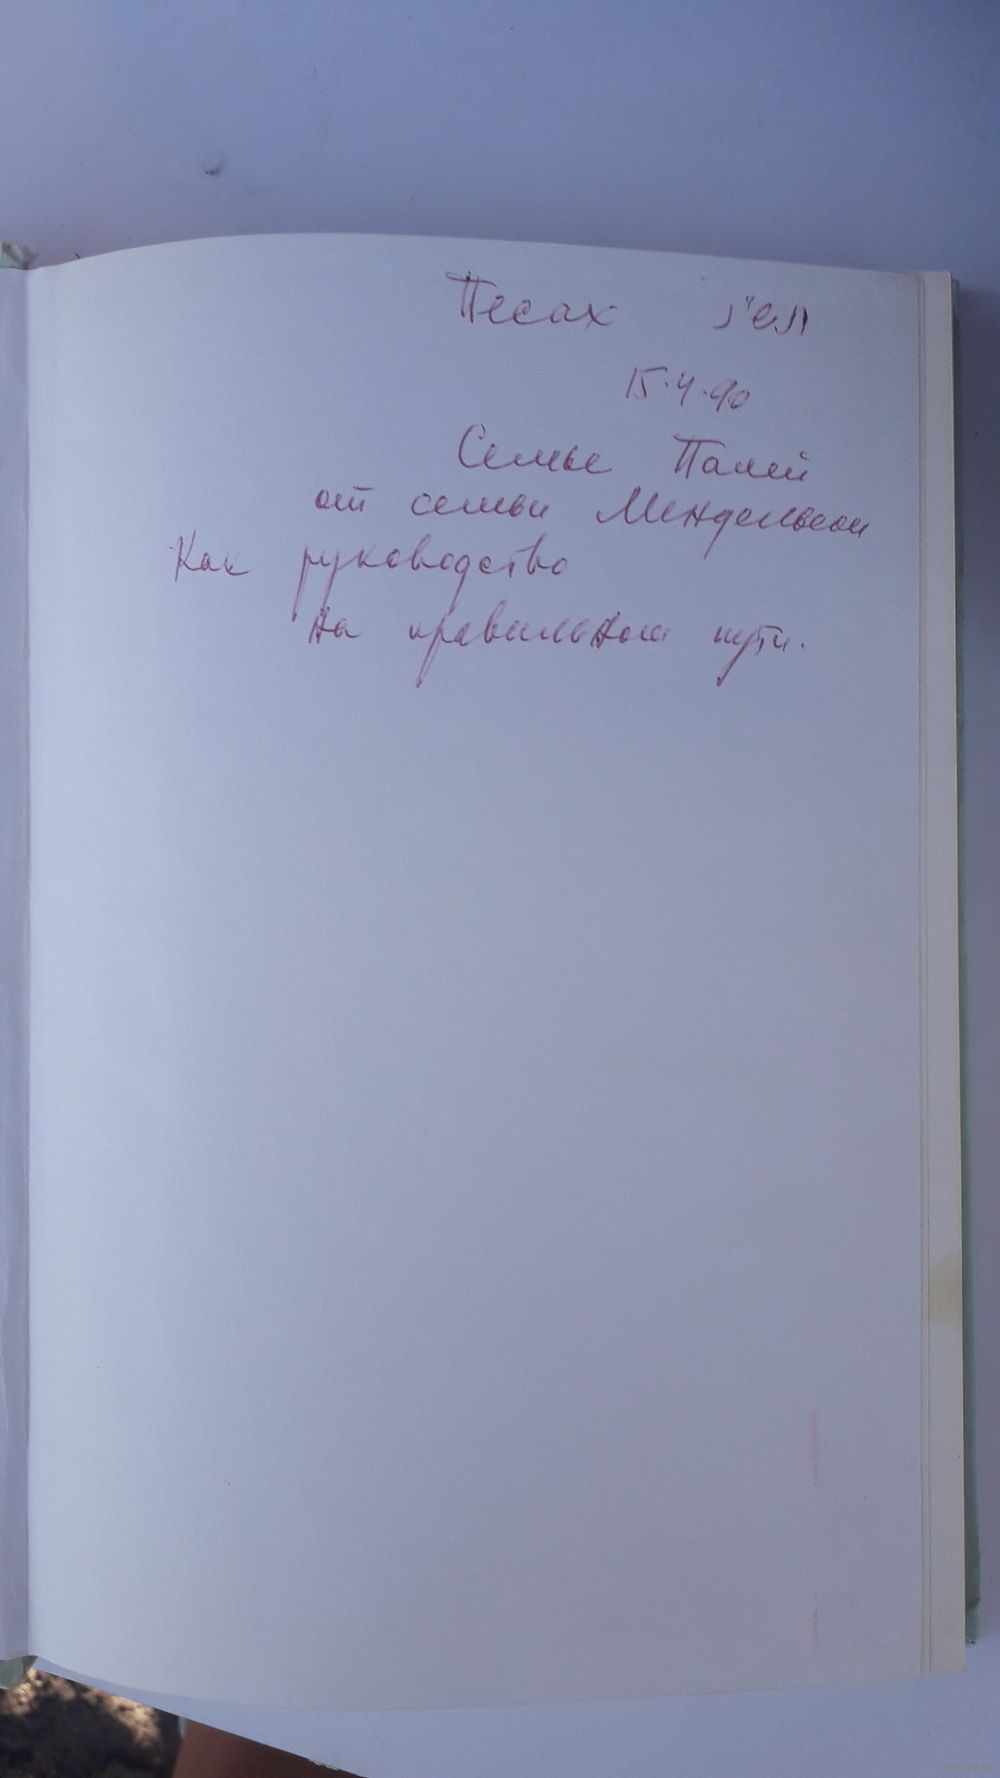 Песах תש"נ
15.4.90
Семье Палей
от семьи Мендельсон
Как руководство
на правильном пути.